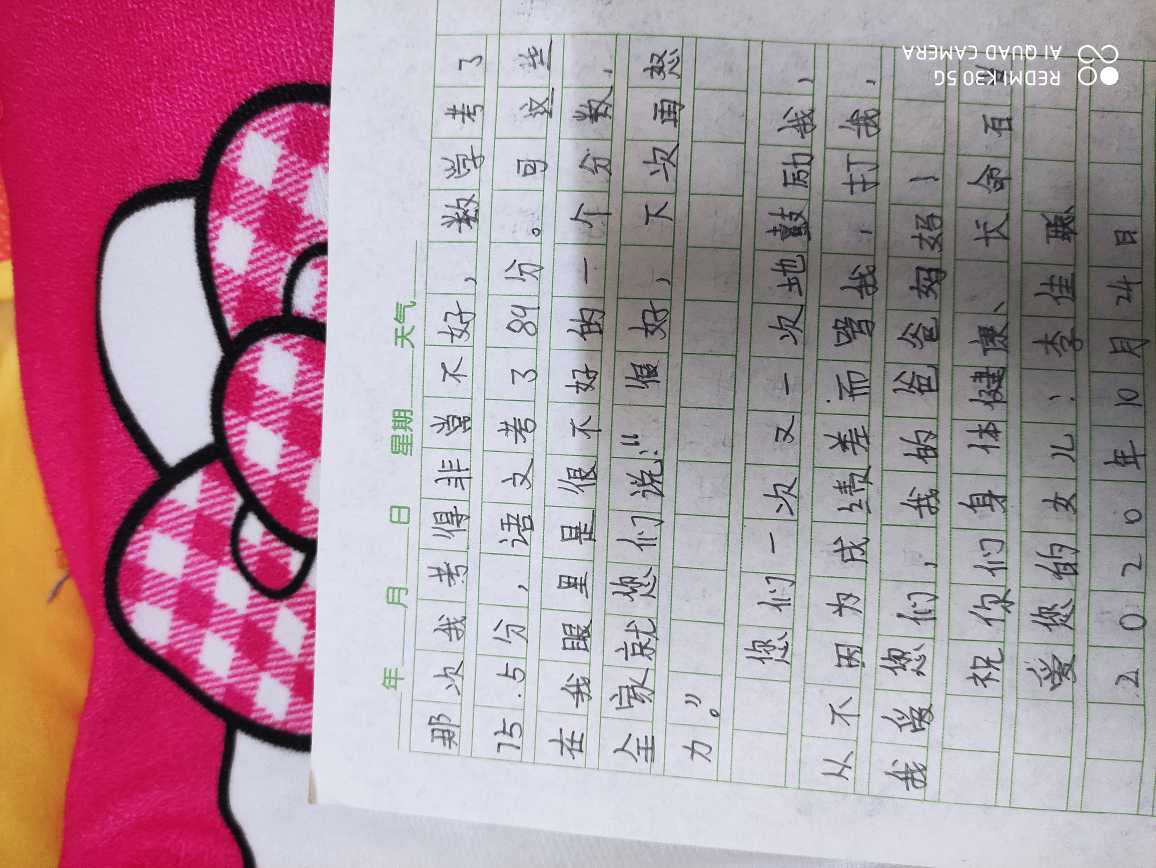 年 月 日 星期 天气
那次我考得非常不好，数学考了
75.5分，语文考了89分。可这些
在我眼里是很不好的一个分数，
全家就您们说:“很好，下次再努
力”。
您们一次又一次地鼓励我，
从不因为成绩差而骂我，打我，
我爱您们，我的爸爸妈妈！
祝你们身体健康、长命百
爱您的女儿：李佳
2020年10月24日
REDMI K30 5G
AI QUAD CAMERA